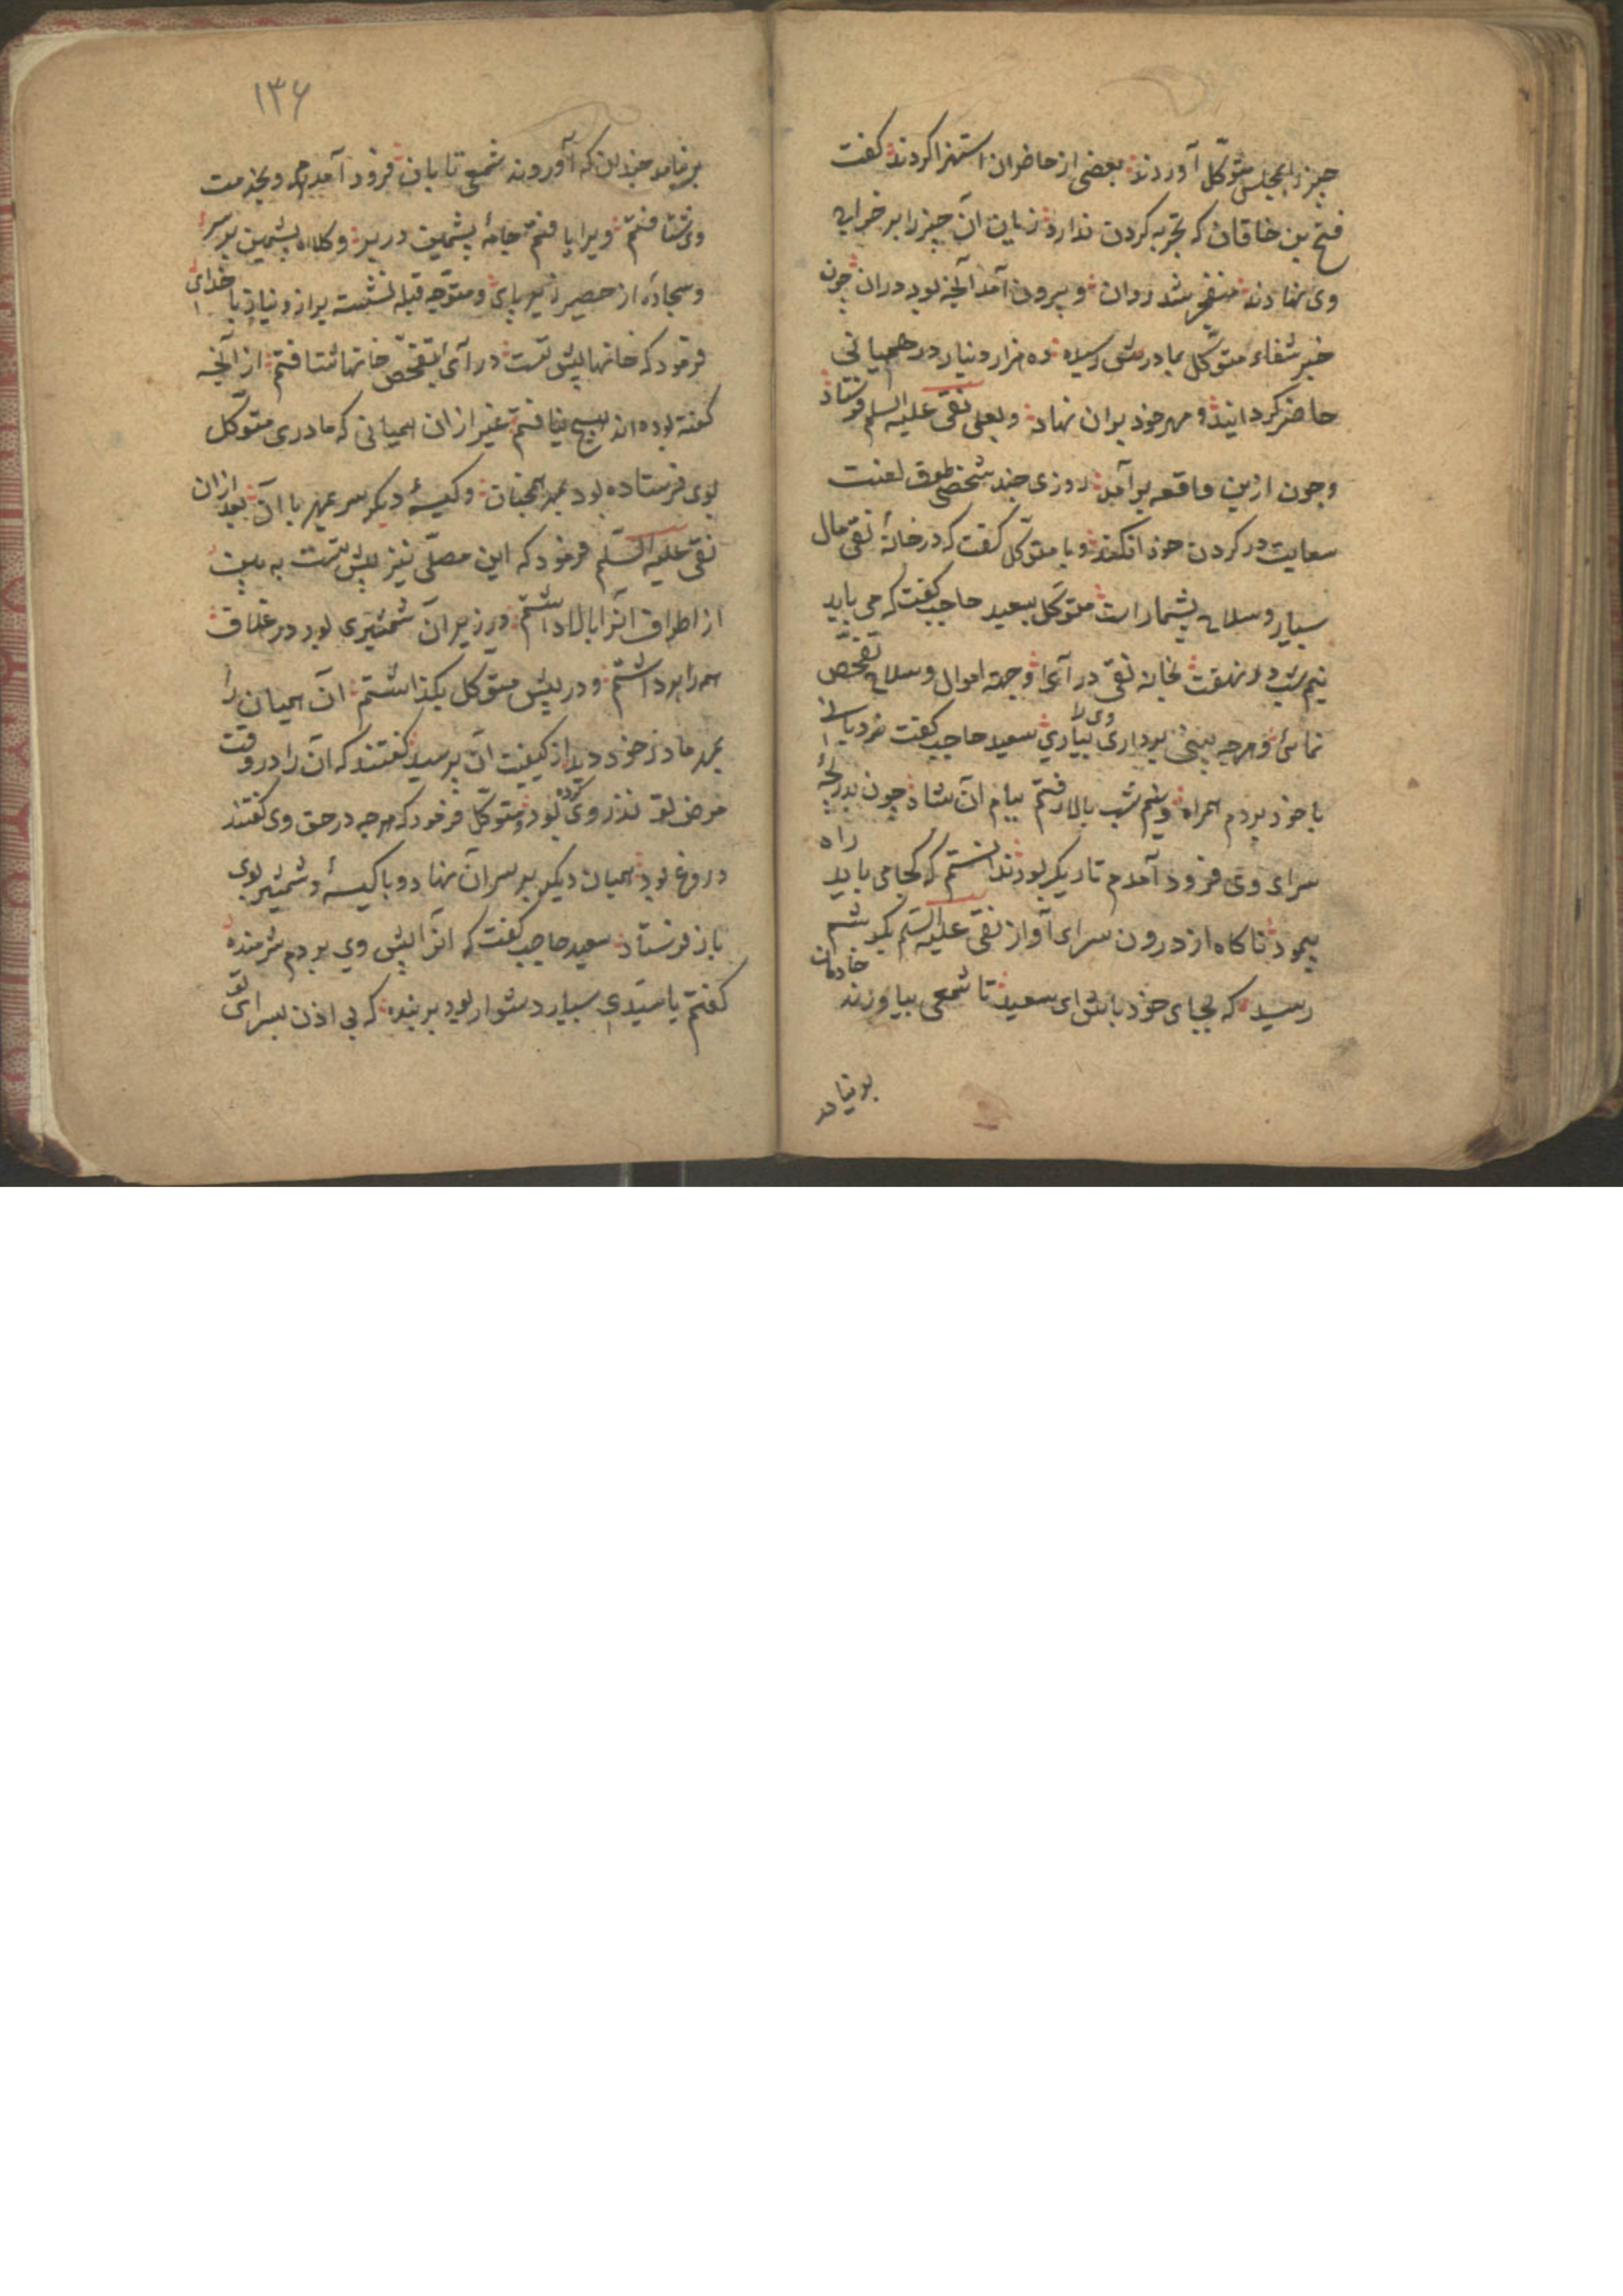 چیز را بمجلس متوکّل آوردند بعضی از حاضران استهزا کردند کفت
فتح بن خاقان که تجربه کردن ندارد زیان آن چیز را بر خراج
وی نهادند منفجر شد روان و بیرون آمد آنچه بود دران چون
خبر شفاء متوکّل بمادرش رسید ده هزار دینار در همیانی
حاضر کردانید و مهر خود بران نهاد و بعلی نقی علیه السلم فرستاد
و چون ازین واقعه برآمد روزی چند شخصی طوق لعنت
سعایت در کردن خود افکند و با متوکّل کفت که در خانهٔ نقی مال
بسیار و سلاح بیشمار است متوکّل بسعید حاجب کفت که می باید
نیم شب بخانه نقی در آی و جهة اموال و سلاح تفحّص
نمائی و هرچه بینی برداری بیاری سعید حاجب کفت نردبانی
با خود بردم همراه و نیم شب بالا رفتم ببام آن شاد چون بدرجهٔ
سرای وی فرود آمدم تاریک بود ندانستم که کجا می باید راه
پیمود ناکاه از درون سرای آواز نقی علیه السّلم بکوشم
رسید که بجای خود باش ای سعید تا شمعی بیاورند خادمان
بر نیامد
۱۳۶
بر نیامد چندان که آوردند شمعی تابان فرود آمدم و بخدمت
وی شتافتم ویرا یافتم جامهٔ پشمین در بر و کلاه پشمین بر سر
و سجاده از حصیر زیر پای و متوجه قبله نشسته براز و نیاز با خدای
فرمود که خانها پیش تست در آی بتفحّص خانها شتافتم از آنچه
کفته بوده اند هیچ نیافتم غیر از ان همیانی که مادر متوکّل
بوی فرستاده بود بمهر همچنان و کیسهٔ دیکر سر بمهر با آن بعد ازان
نقی علیه السّلم فرمود که این مصلّی نیز پیش تست به بین
از اطراف آنرا بالا داشتم در زیر آن شمشیری بود در غلاف
همه را برداشتم و در پیش متوکّل بکذاشتم آن همیان را
بمهر مادر خود دید از کیفیت آن پرسید کفتند که آن را در وقت
مرض تو نذر وی کرده بود متوکّل فرمود که هرچه در حق وی کفتند
دروغ بود همیان دیکر بر سر آن نهاد و با کیسهٔ و شمشیر بوی
باز فرستاد سعید حاجب کفت که آنرا پیش وی بردم شرمنده
کفتم یا سیّدی بسیار دشوار بود بر بنده که بی اذن بسرای تو